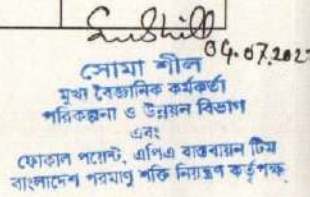 04.07.202
সোমা শীল
মুখ্য বৈজ্ঞানিক কর্মকর্তা
পরিকল্পনা ও উন্নয়ন বিভাগ
এবং
ফোকাল পয়েন্ট, এপিএ বাস্তবায়ন টিম
বাংলাদেশ পরমাণু শক্তি নিয়ন্ত্রণ কর্তৃপক্ষ